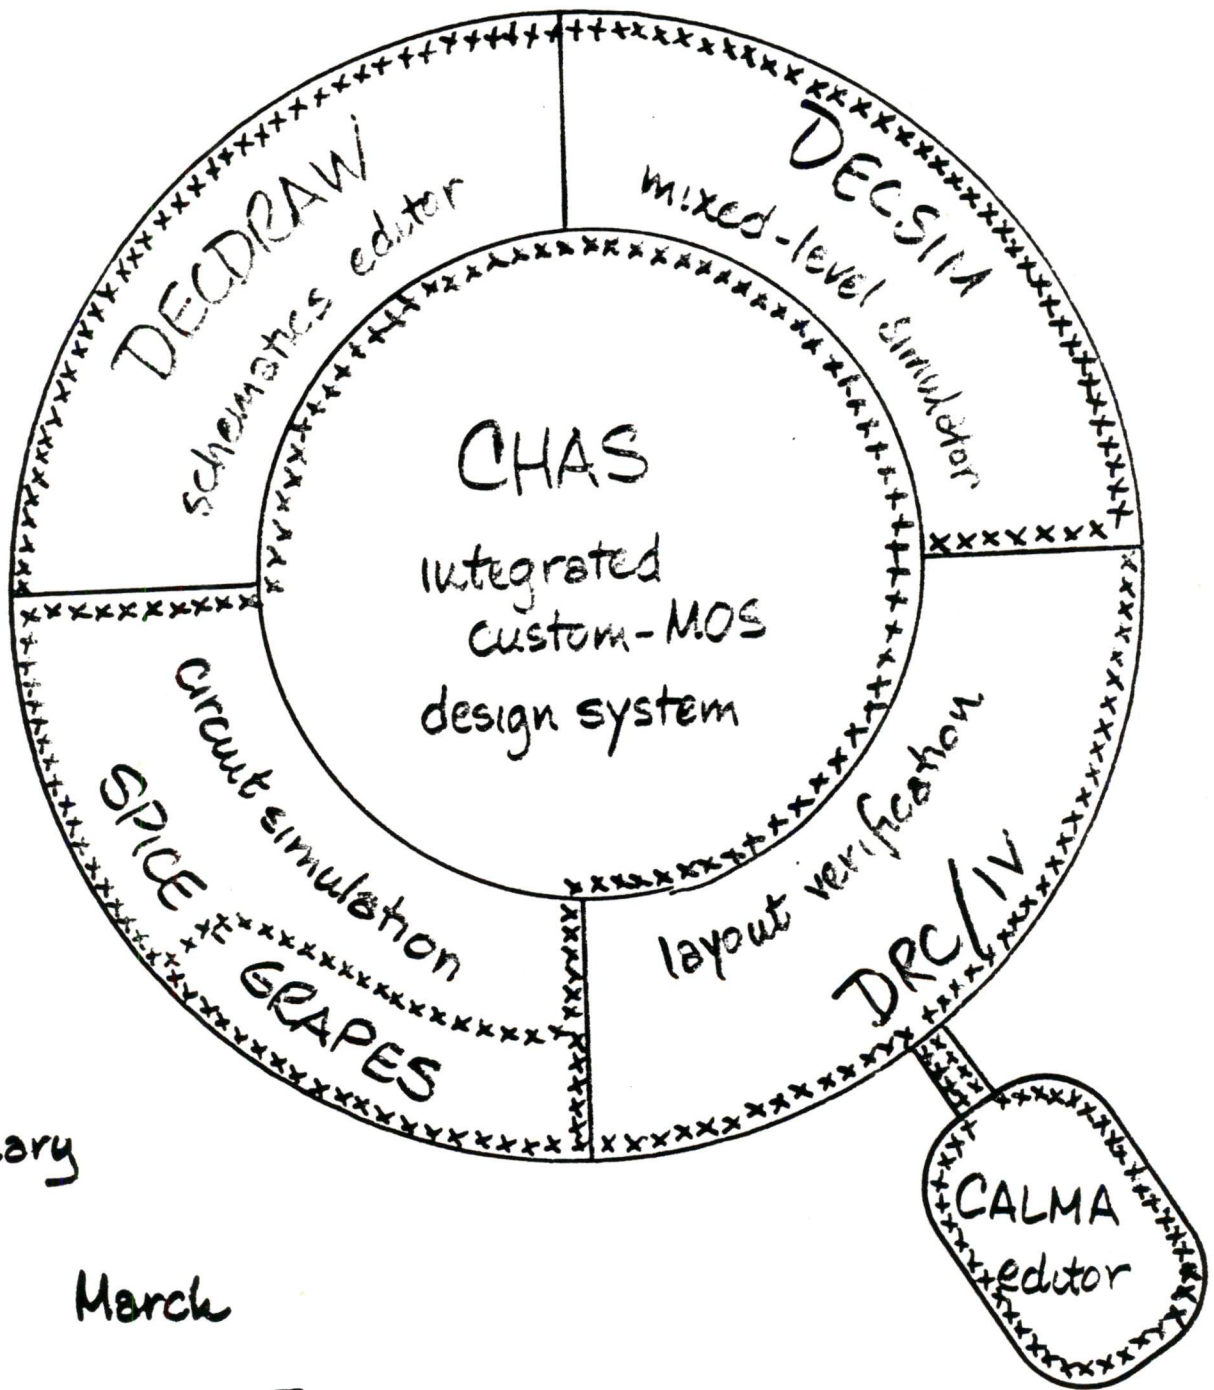 DECDRAW
schematics editor
DECSIM
mixed-level simulator
CHAS
integrated
custom-MOS
design system
circuit simulation
SPICE
GRAPES
layout verification
DRC/IV
CALMA
editor
March